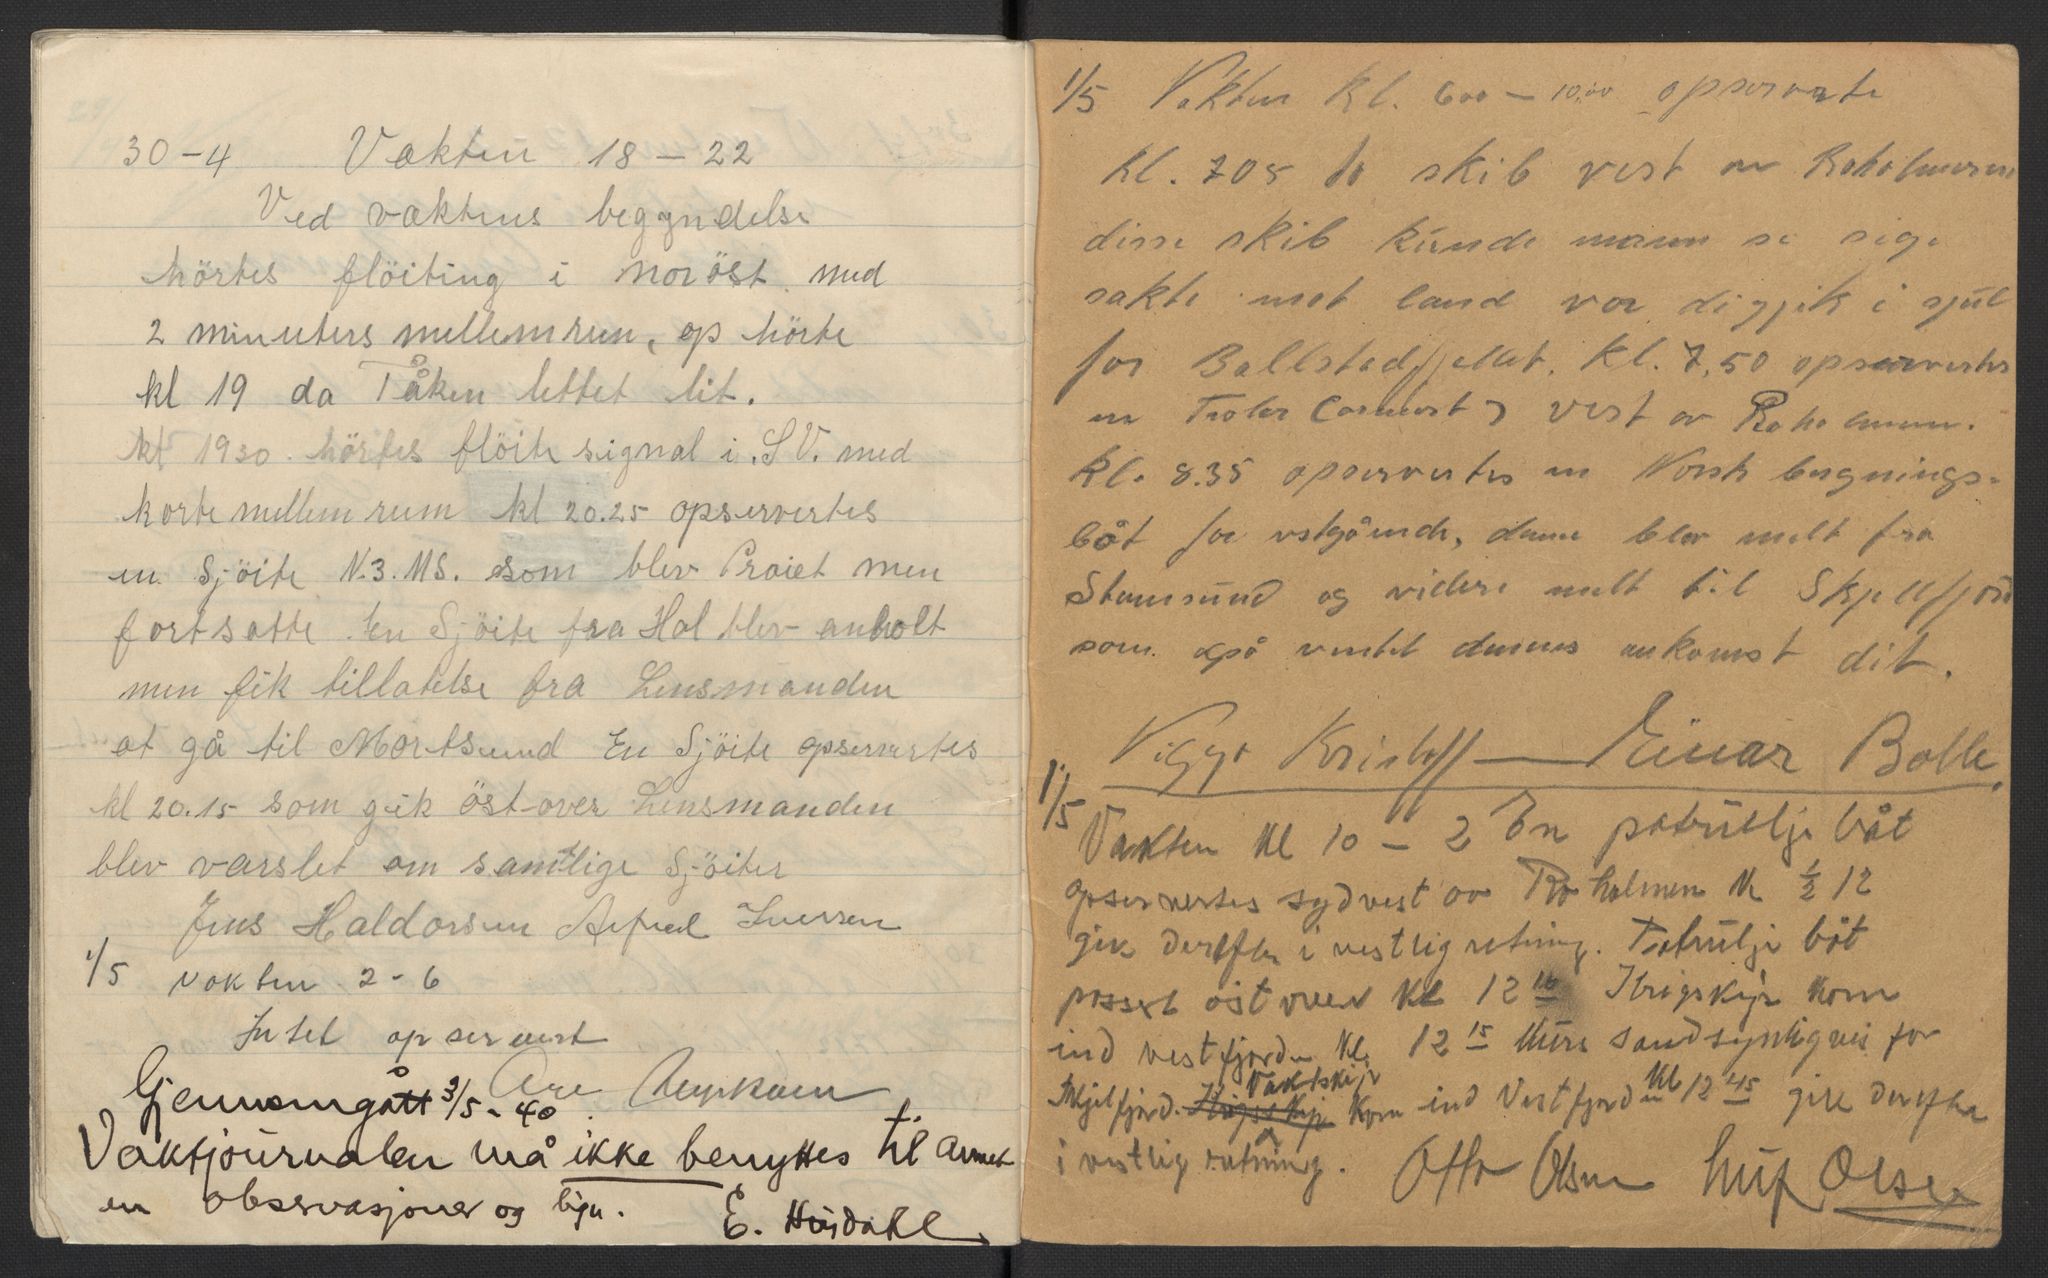 30-4 Vakten 18-22
Ved vaktens begyndelse
hörtes flöiting i noröst med
2 minuters mellemrum, op hörte
kl 19 da Tåken lettet lit.
kl 1930. hörtes flöite signal i. S V. med
korte mellem rum kl 20.25 opservertes
en Sjöite N.3.MS. som blev Praiet men
fortsatte. En Sjöite fra Hol blev anholt
men fik tillatelse fra Lensmanden
at gå til Mortsund En Sjöite opservertes
kl 20.15 som gik öst-over Lensmanden
blev varslet om samtlige Sjöiter
Jens Haldorsen Alfred Iversen
1/5 vakten 2-6
Intet opservert
Are
Gjennomgått 3/5-40
Vaktjournalen må ikke benyttes til annet
en observasjoner og lign.
E. Hovdahl
1/5 Vakten Kl. 600 - 10,00 opserverte
kl. 705 to skib vest av Roholmene
disse skib kunde mann se sige
sakte mot land var di gjik i sjul
for Ballstadfjellet. Kl. 7,50 opservertes
en Troler vest av Roholmen.
Kl. 8.35 opservertes en Norsk bergnings-
båt for vstgående, denne blev melt fra
Stamsund og videre melt til Skjellfjord
som også ventet dennes ankomst dit.
Viggo Kristoff — Einar Bolle.
1/5
Vakten Kl 10 - 2 En patrulje båt
opservertes sydvest av Roholmen Kl 1/2 12
gik derefter i vestlig retning. Patrulje båt
passert öst over Kl 12 10 Krigskip kom
ind vestfjorden Kl. 12 15 Kurs sandsynligvis for
Skjelfjord. Krigsskip Vaktskip Kom ind Vestfjorden Kl 12 45 gik derefter
i vestlig retning. Otto Olsen Leif Olsen